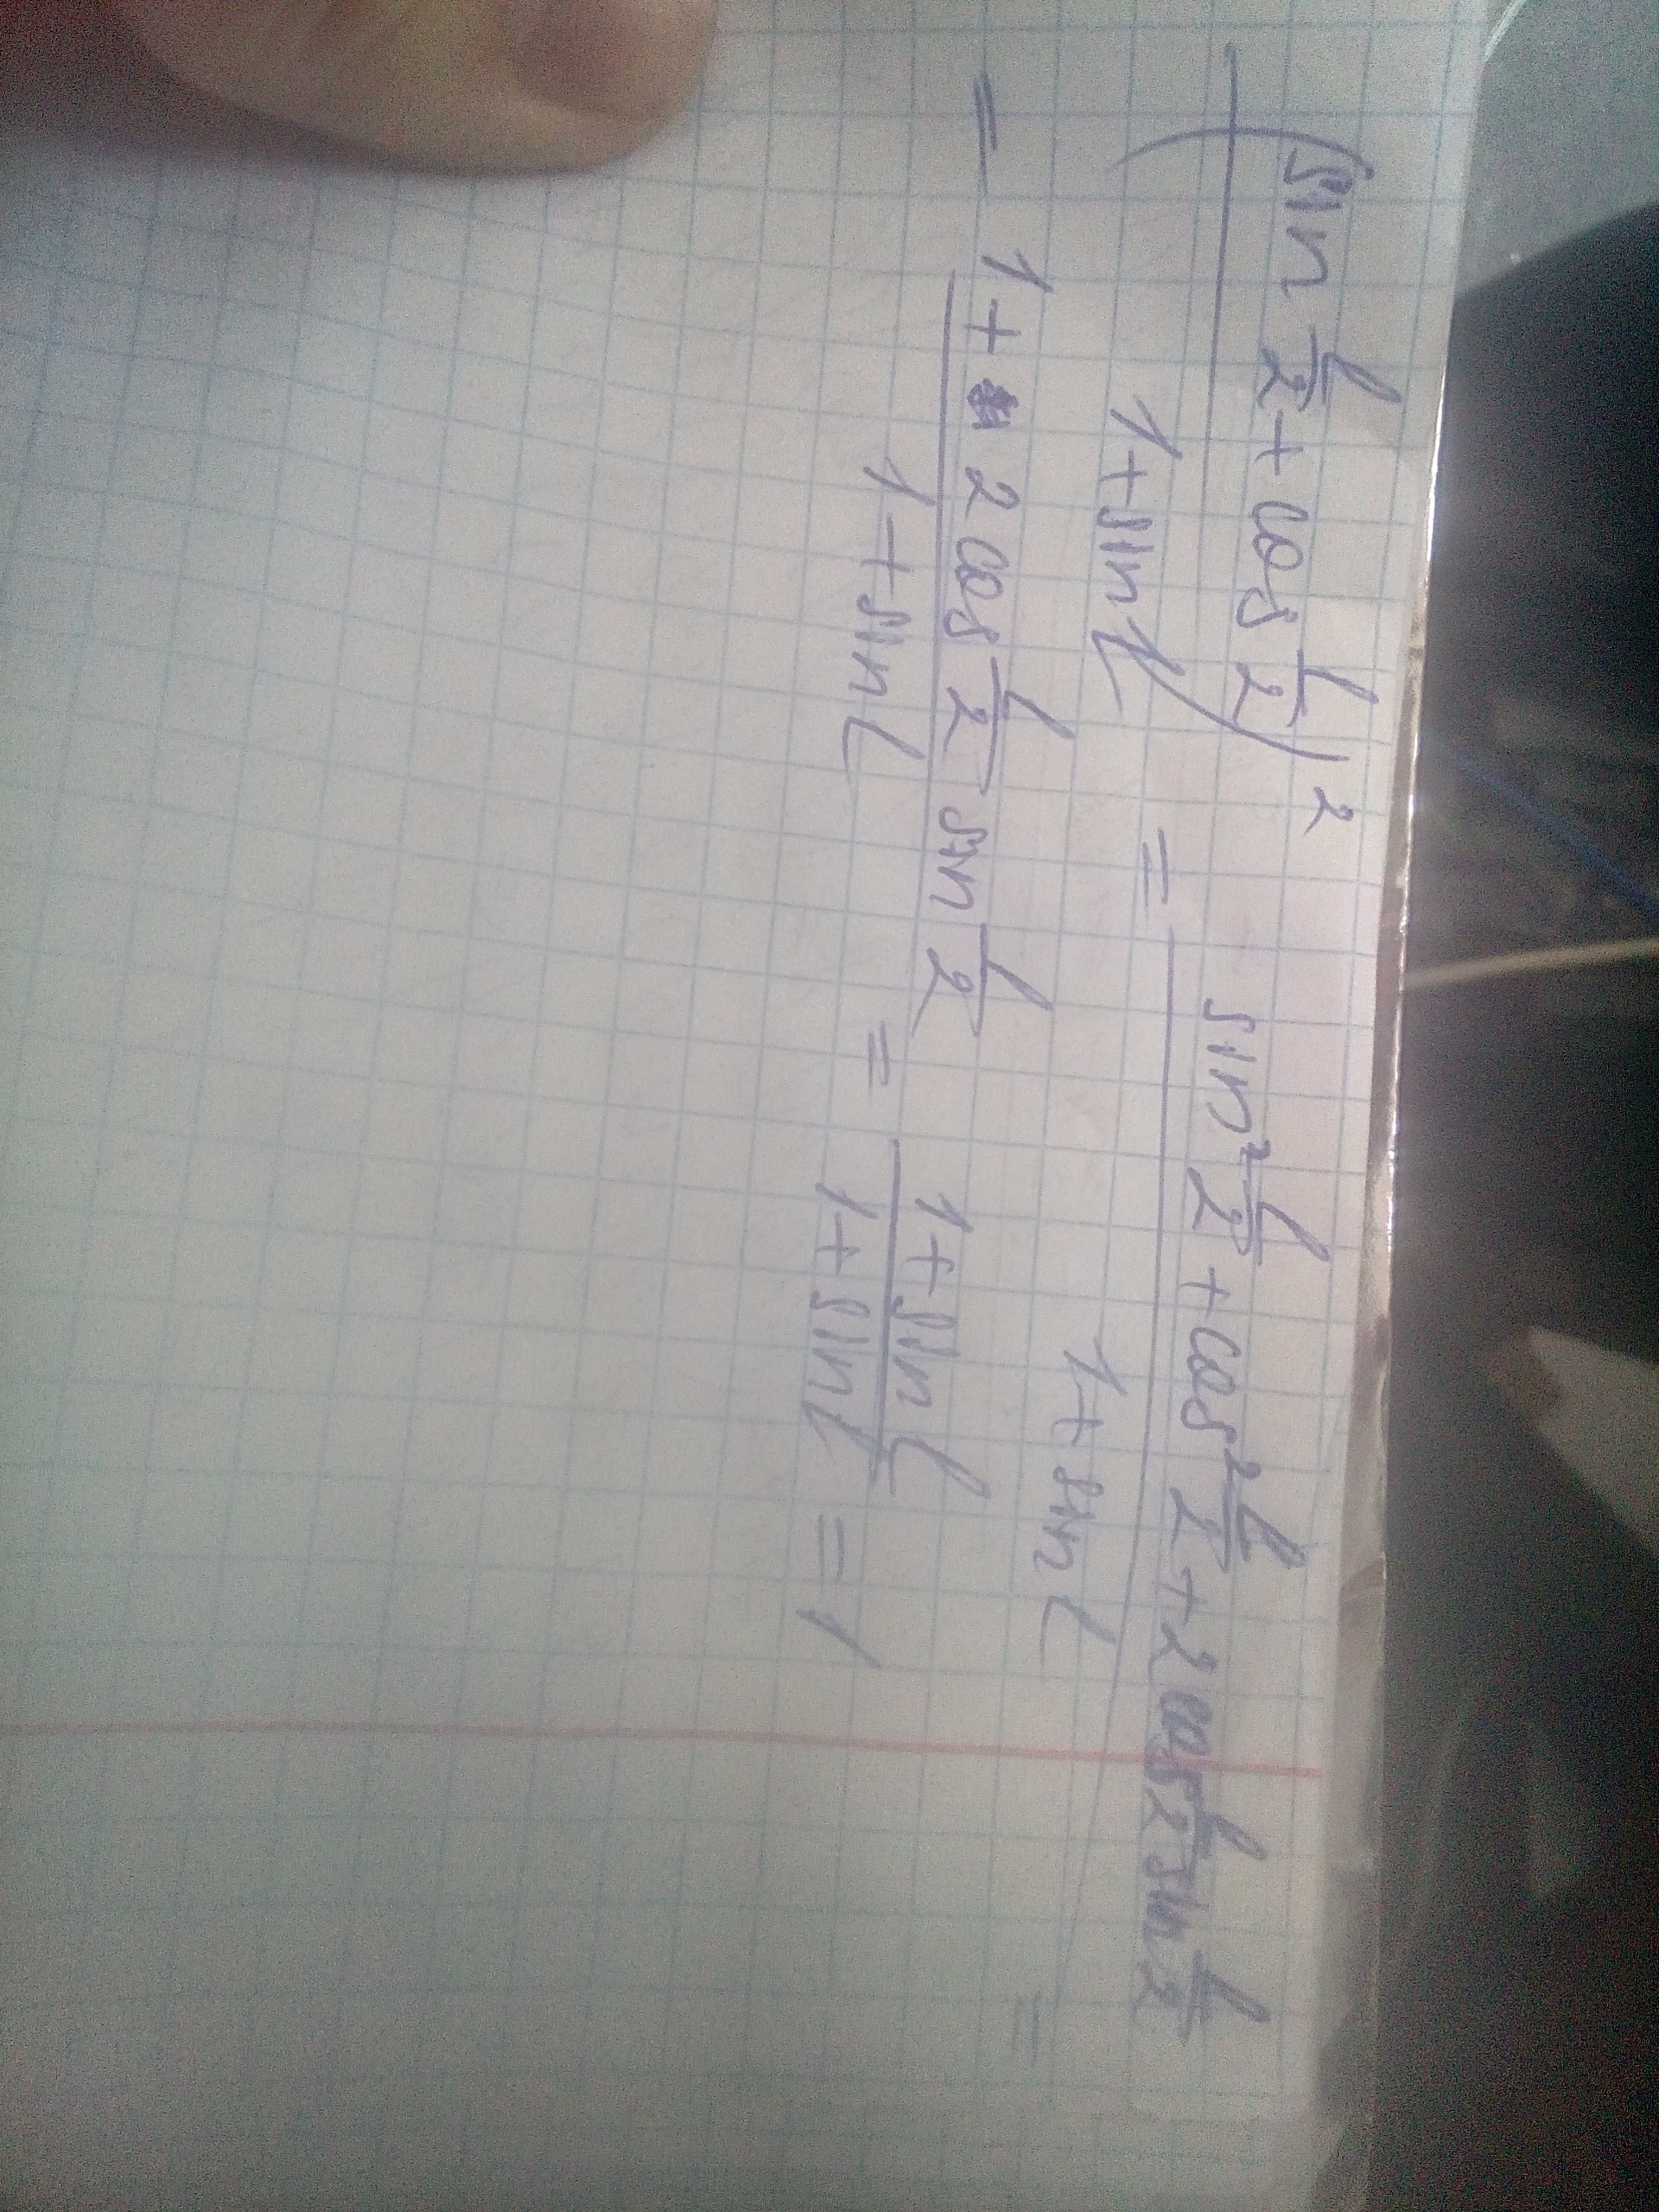 (sin l/2 + cos l/2)² / 1+sin l = sin² l/2 + cos² l/2 + 2 cos l/2 sin l/2 / 1+ sin l =
= 1+ 2 cos l/2 sin l/2 / 1+sin l = 1+sin l / 1+sin l = 1